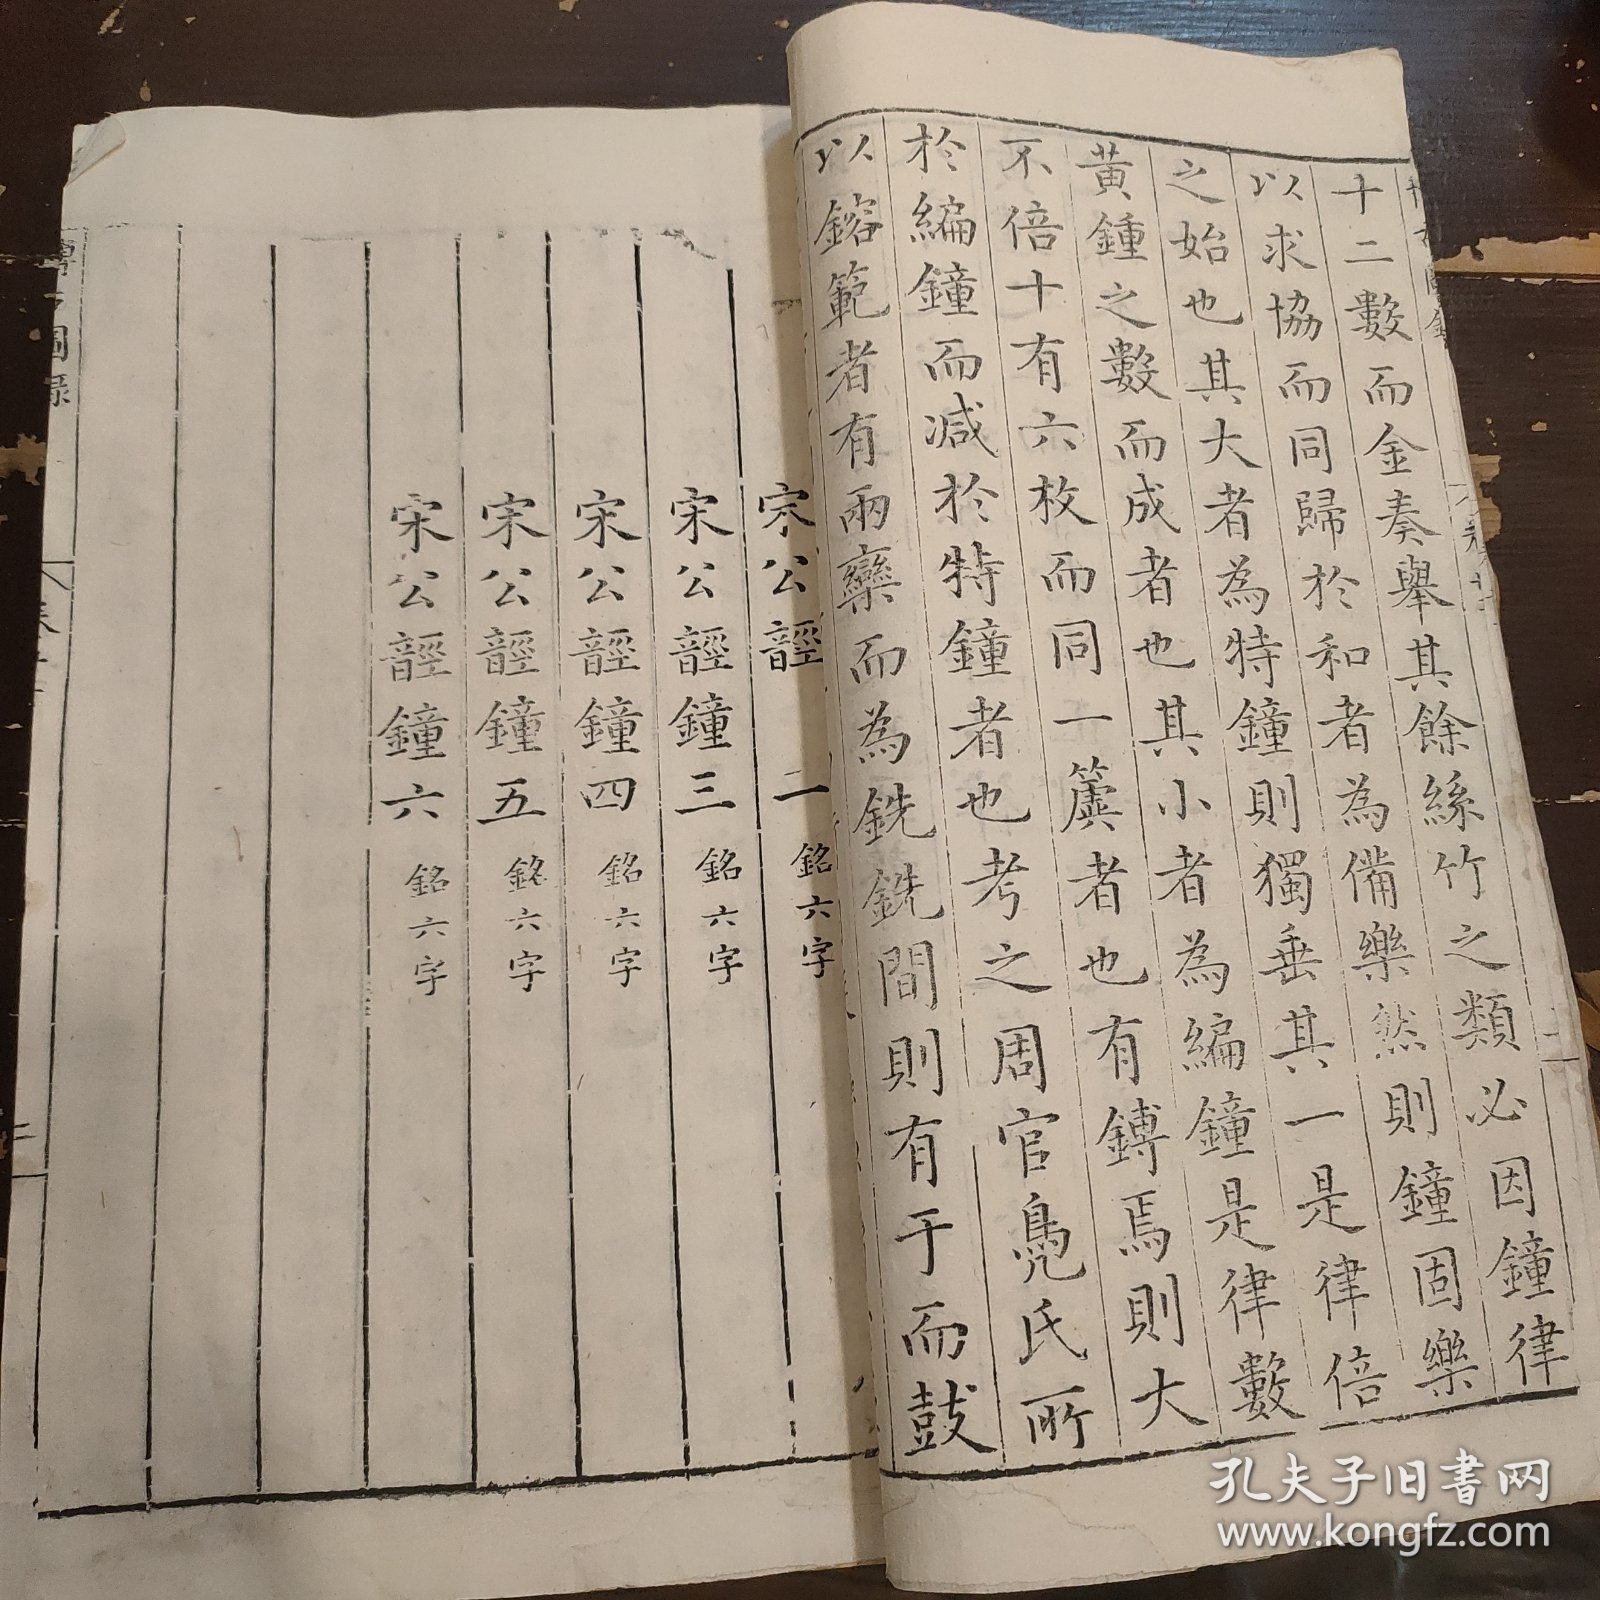 十二數而金奏舉其餘絲竹之類必因鐘律
以求協而同歸於和者為備樂然則鐘固樂
之始也其大者為特鐘則獨垂其一是律倍
黃鍾之數而成者也其小者為編鐘是律數
不倍十有六枚而同一簴者也有鎛焉則大
於編鐘而減於特鐘者也考之周官鳧氏所
以鎔範者有兩欒而為銑銑間則有于而鼓
宋公䛭 二 銘六字
宋公䛭鐘三 銘六字
宋公䛭鐘四 銘六字
宋公䛭鐘五 銘六字
宋公䛭鐘六 銘六字
孔夫子旧书网
www.kongfz.com